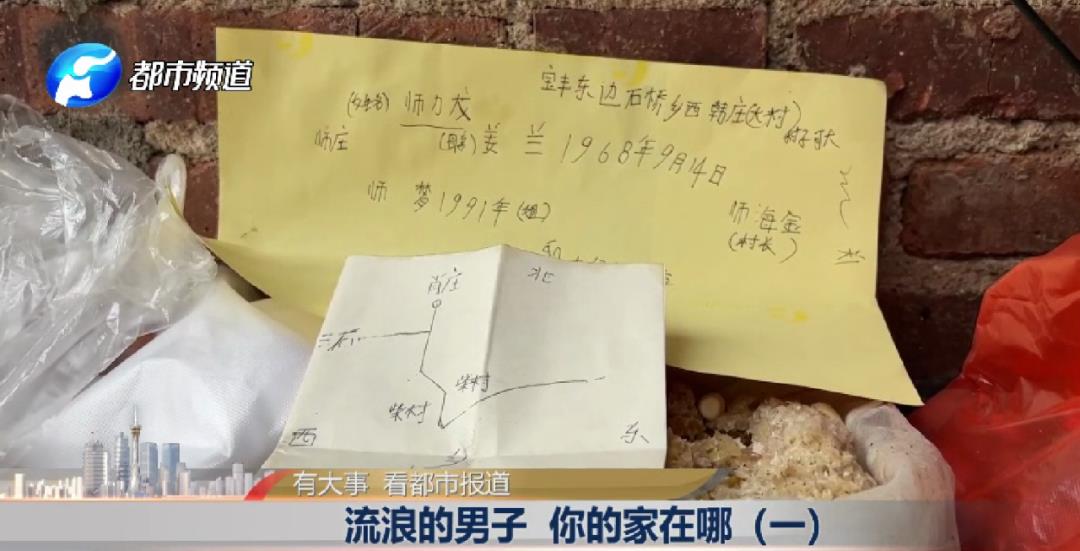 都市频道
宝丰东边石桥乡西韩庄(大村)
(姓名) 师力龙
师庄
(母亲) 姜兰 1968年9月14日
师梦1991年(姐)
师海金
(村长)
北
肖庄
柴村
柴村
西
东
有大事 看都市报道
流浪的男子 你的家在哪(一)